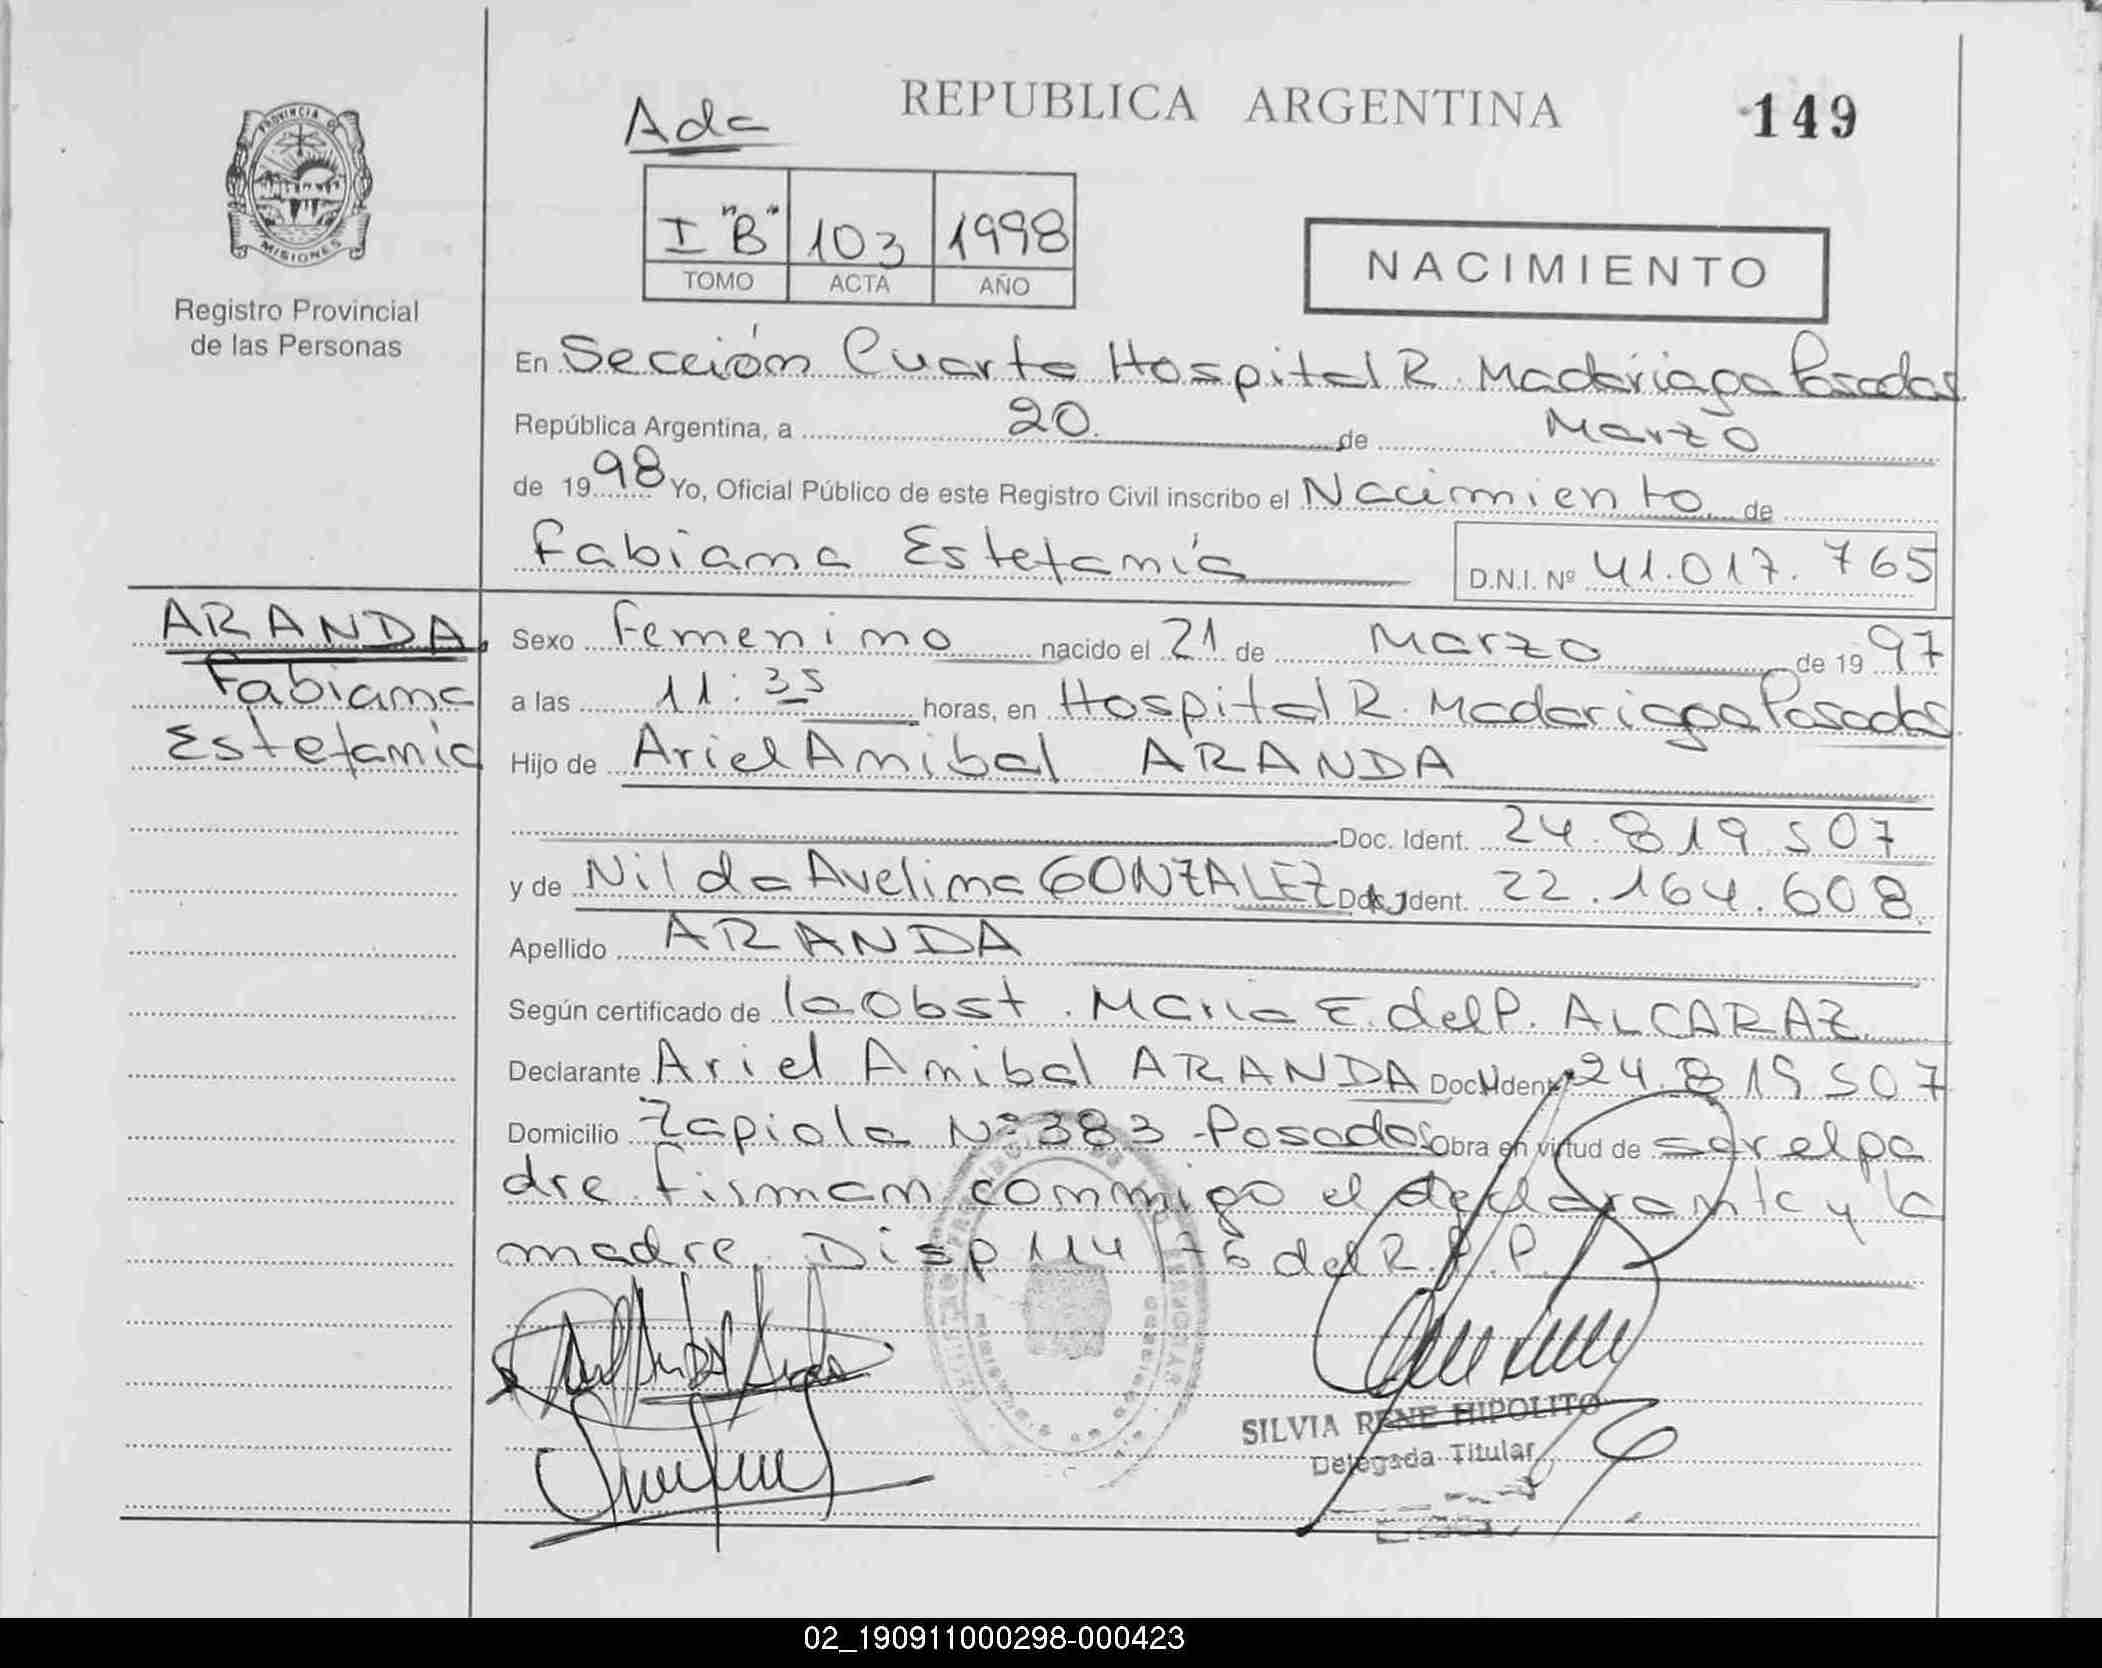 PROVINCIA DE
MISIONES
Registro Provincial
de las Personas
Ada
REPUBLICA ARGENTINA
149
I "B" 103 1998
TOMO ACTA AÑO
NACIMIENTO
En Sección Cuarta Hospital R. Madariaga Posadas
República Argentina, a 20 de Marzo
de 1998 Yo, Oficial Público de este Registro Civil inscribo el Nacimiento de
Fabiana Estefanía D.N.I. Nº 41.017.765
ARANDA,
Fabiana
Estefania
Sexo Femenino nacido el 21 de Marzo de 1997
a las 11:35 horas, en Hospital R. Madariaga Posadas
Hijo de Ariel Anibal ARANDA
Doc. Ident. 24.819.507
y de Nilda Avelina GONZALEZ Doc. Ident. 22.164.608
Apellido ARANDA
Según certificado de la Obst. Maria E. del P. ALCARAZ
Declarante Ariel Anibal ARANDA Doc. Ident. 24.819507
Domicilio Zapiola Nº 383 - Posadas Obra en virtud de ser el pa
dre firman conmigo el declarante y la
madre. Disp 114/76 del R.P.P.
SILVIA RENE HIPOLITO
Delegada Titular
02_190911000298-000423